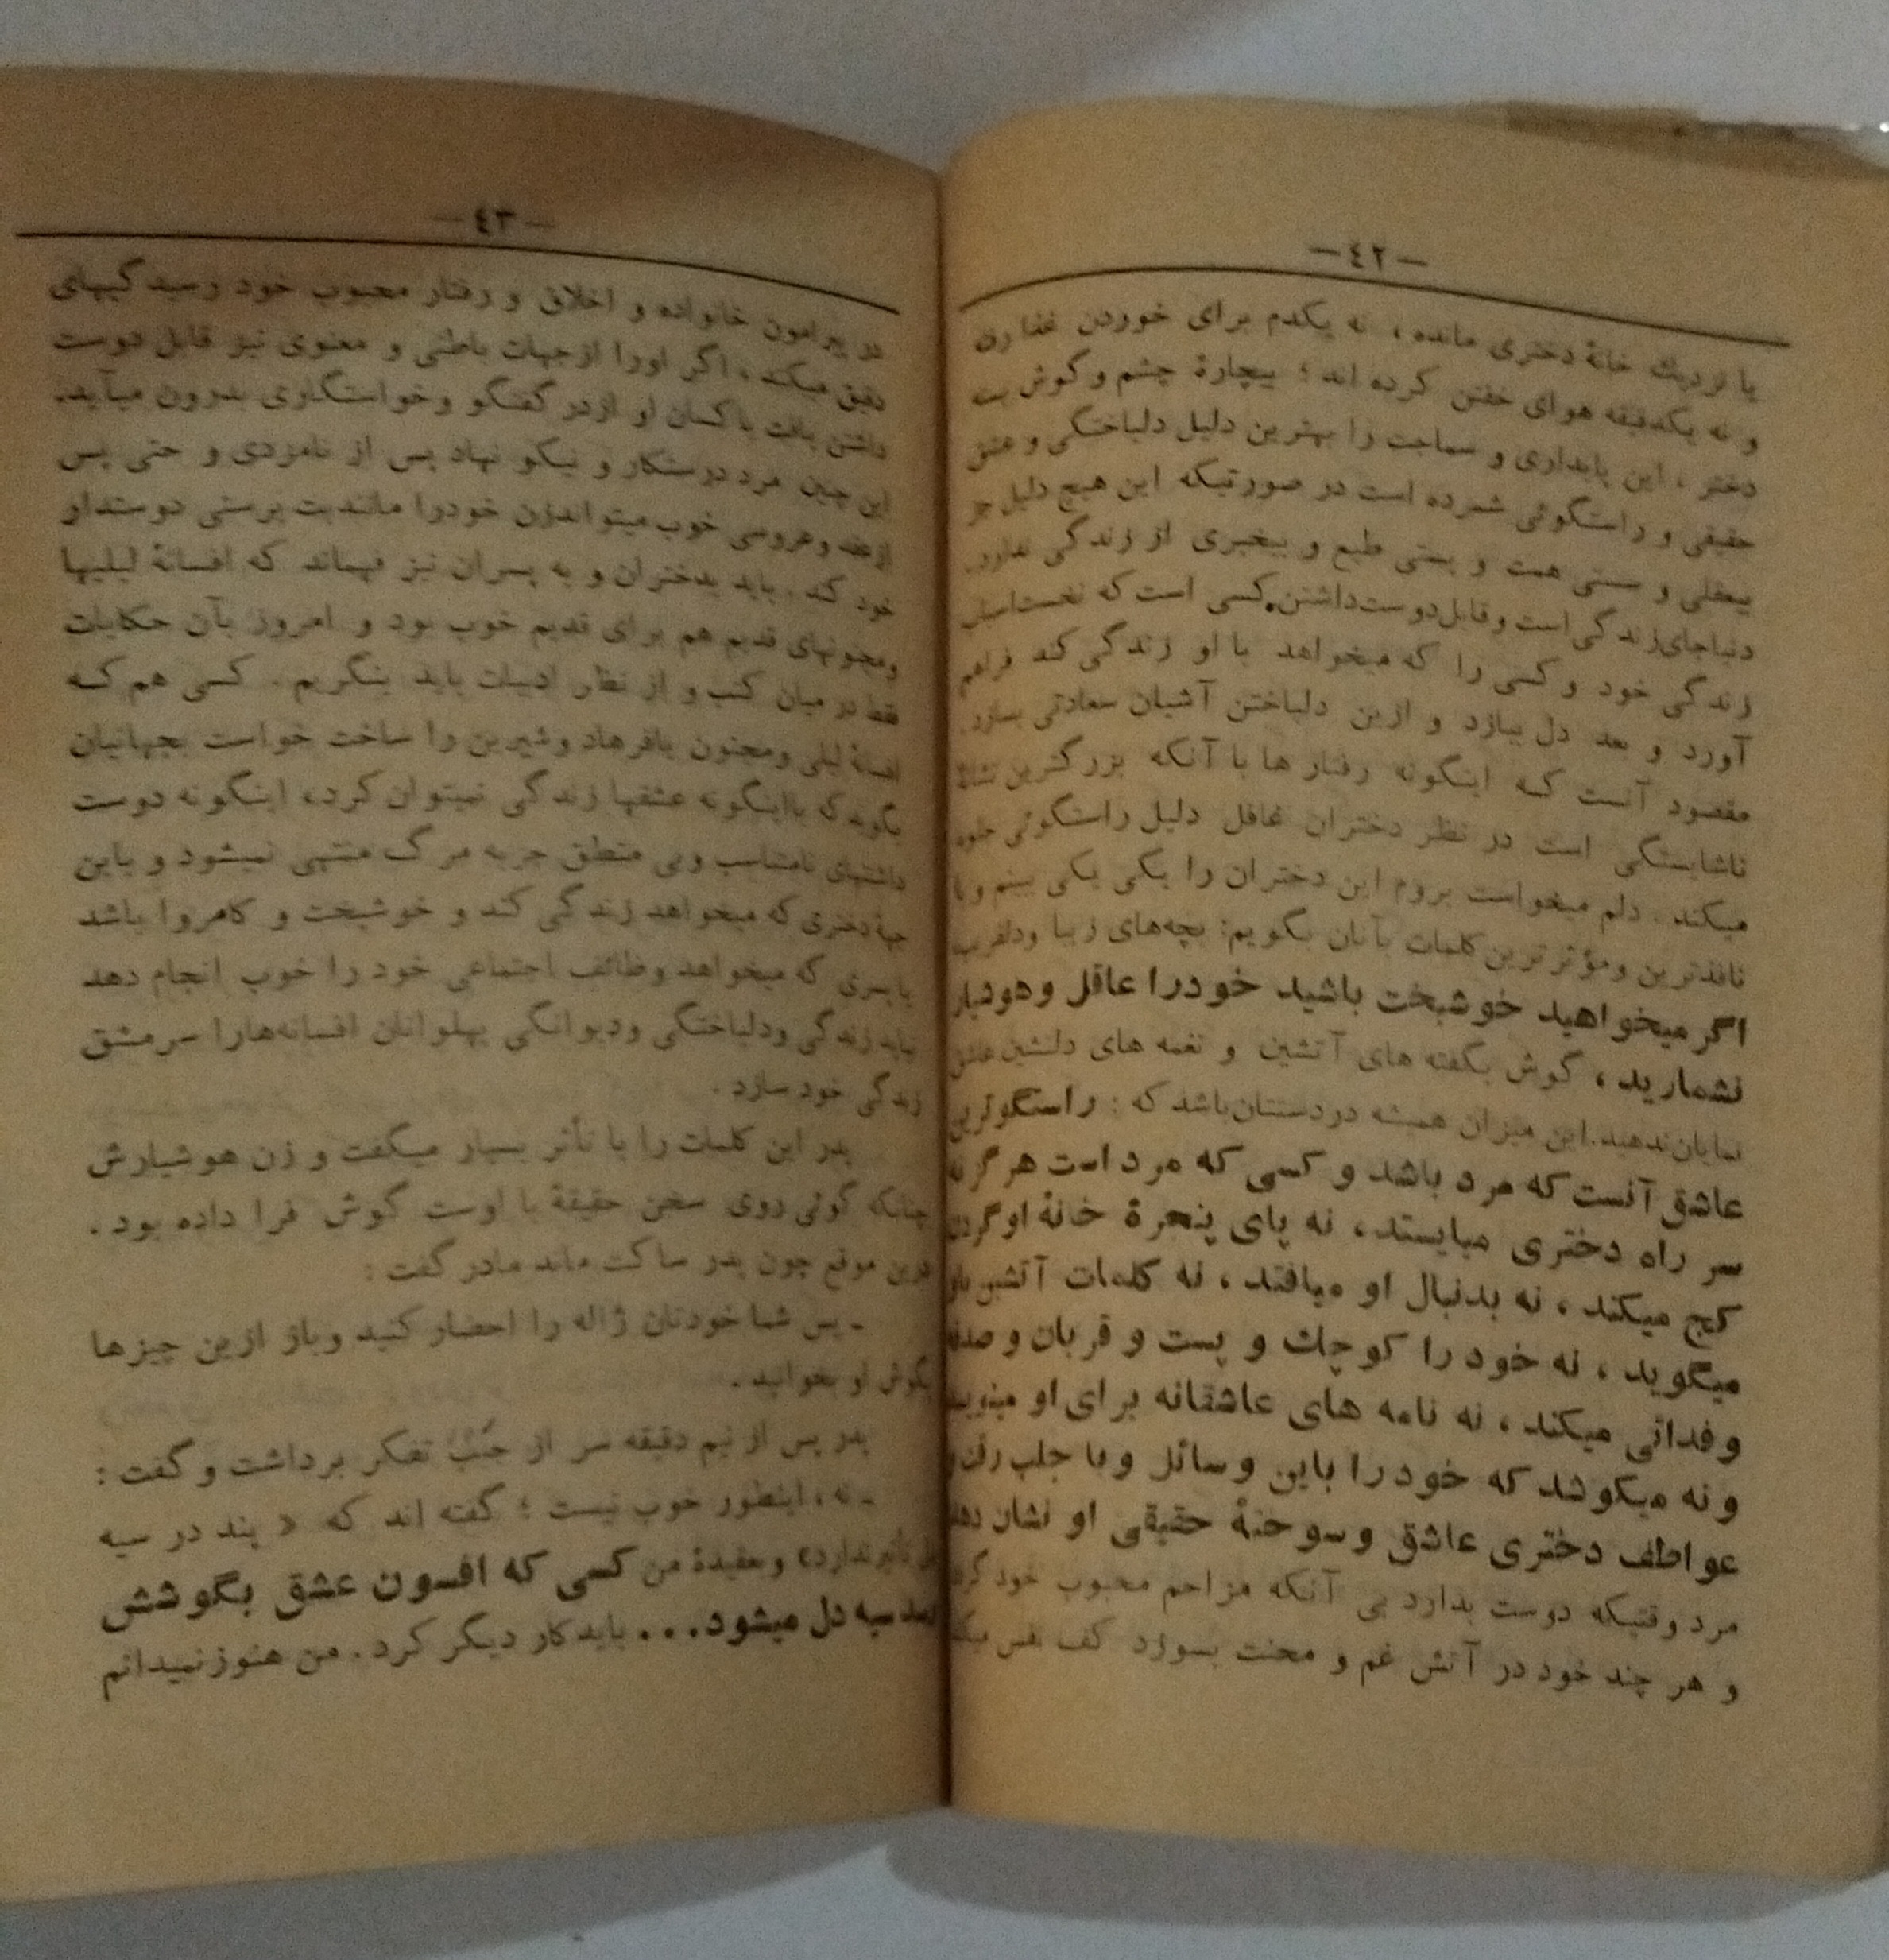 — ٤٢ —
یا نزدیك خانهٔ دختری مانده ، نه یکدم برای خوردن غذا رفته
و نه یکدقیقه هوای خفتن کرده اند ؛ بیچارهٔ چشم و گوش بسته
دختر ، این پایداری و سماجت را بهترین دلیل دلباختگی و عشق
حقیقی و راستگوئی شمرده است در صورتیکه این هیچ دلیل جز
بیعقلی و سستی همت و پستی طبع و بیخبری از زندگی ندارد.
دنیا جای زندگی است و قابل دوست داشتن کسی است که نخست اسباب
زندگی خود و کسی را که میخواهد با او زندگی کند فراهم
آورد و بعد دل ببازد و ازین دلباختن آشیان سعادتی بسازد.
مقصود آنست که اینگونه رفتار ها با آنکه بزرگترین نشانهٔ
ناشایستگی است در نظر دختران غافل دلیل راستگوئی جلوه
میکند . دلم میخواست بروم این دختران را یکی یکی ببینم و با
نافذترین و مؤثرترین کلمات بآنان بگویم: بچه‌های زیبا و دلفریب
اگر میخواهید خوشبخت باشید خودرا عاقل و هوشیار
نشمارید ، گوش بگفته های آتشین و نغمه های دلنشین عشق
نمایان ندهید.این میزان همیشه در دستتان باشد که : راستگوترین
عاشق آنست که مرد باشد و کسی که مرد است هرگز نه
سر راه دختری میایستد ، نه پای پنجرهٔ خانهٔ او گردن
کج میکند ، نه بدنبال او میافتد ، نه کلمات آتشین باو
میگوید ، نه خود را کوچك و پست و قربان و صدقه
و فدائی میکند ، نه نامه های عاشقانه برای او مینویسد
و نه میکوشد که خود را باین وسائل و با جلب رقت و
عواطف دختری عاشق و سوختهٔ حقیقی او نشان دهد
مرد وقتیکه دوست بدارد بی آنکه مزاحم محبوب خود گردد
و هر چند خود در آتش غم و محنت بسوزد کف نفس میکند
— ٤٣ —
در پیرامون خانواده و اخلاق و رفتار محبوب خود رسیدگیهای
دقیق میکند ، اگر اورا از جهات باطنی و معنوی نیز قابل دوست
داشتن یافت با کسان او از در گفتگو و خواستگاری بدرون میآید.
این چنین مرد درستکار و نیکو نهاد پس از نامزدی و حتی پس
از عقد و عروسی خوب میتواند زن خودرا مانند بت پرستی دوستدار
خود کند . باید بدختران و به پسران نیز فهماند که افسانهٔ لیلیها
و مجنونهای قدیم هم برای قدیم خوب بود و امروز بآن حکایات
فقط در میان کتب و از نظر ادبیات باید بنگریم . کسی هم که
افسانهٔ لیلی و مجنون یا فرهاد و شیرین را ساخت خواست بجهانیان
بگوید که با اینگونه عشقها زندگی نمیتوان کرد، اینگونه دوست
داشتنهای نامتناسب و بی منطق جز به مرگ منتهی نمیشود و باین
جهة دختری که میخواهد زندگی کند و خوشبخت و کامروا باشد
یا پسری که میخواهد وظائف اجتماعی خود را خوب انجام دهد
نباید زندگی و دلباختگی و دیوانگی پهلوانان افسانه‌هارا سرمشق
زندگی خود سازد .
پدر این کلمات را با تأثر بسیار میگفت و زن هوشیارش
چنانکه گوئی روی سخن حقیقهٔ با اوست گوش فرا داده بود .
درین موقع چون پدر ساکت ماند مادر گفت :
ـ پس شما خودتان ژاله را احضار کنید و باز ازین چیزها
بگوش او بخوانید .
پدر پس از نیم دقیقه سر از جَیْب تفکر برداشت و گفت :
ـ نه ، اینطور خوب نیست ؛ گفته اند که « پند در سیه
دل تأثیر ندارد» و بعقیدهٔ من کسی که افسون عشق بگوشش
سیه دل میشود... باید کار دیگر کرد . من هنوز نمیدانم